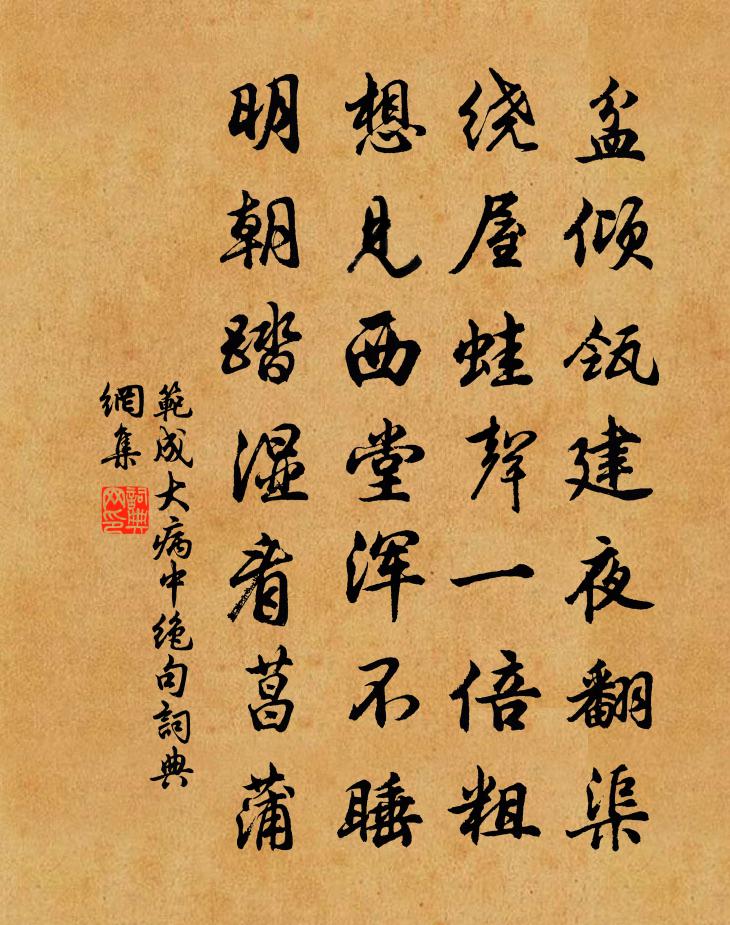 盆倾瓴建夜翻渠
绕屋蛙聲一倍粗
想見西堂浑不睡
明朝踏湿看菖蒲
範成大病中绝句詞典
網集
詞典网印